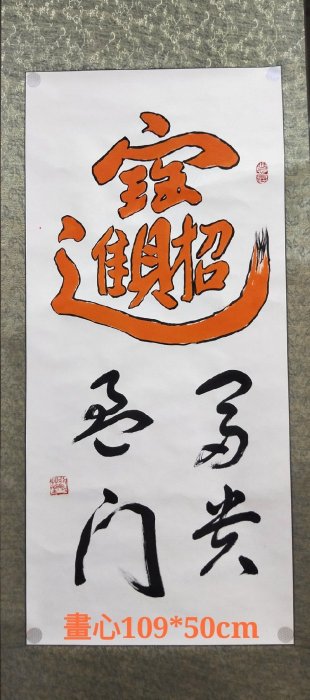 招財進寶
富贵
盈门
畫心109*50cm